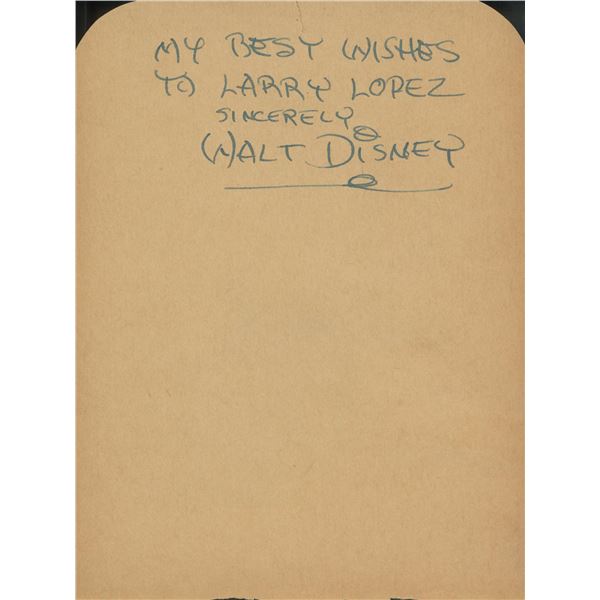 MY BEST WISHES
TO LARRY LOPEZ
SINCERELY
WALT DISNEY